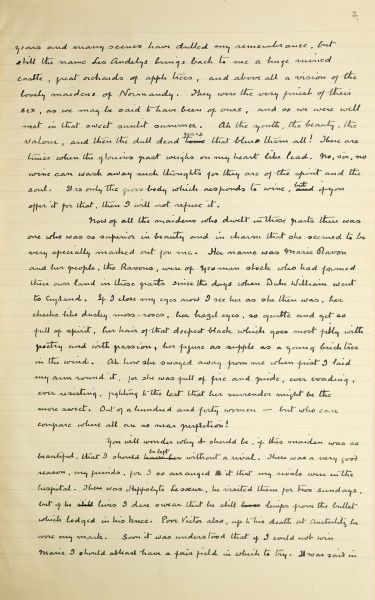 2
years and many scenes have dulled my remembrance, but
still the name Les Andelys brings back to me a huge ruined
castle, great orchards of apple trees, and above all a vision of the
lovely maidens of Normandy. They were the very finest of their
sex, as we may be said to have been of ours, and so we were well
met in that sweet sunlit summer. Ah the youth, the beauty, the
valour, and then the dull dead years that blurs them all! There are
times when the glorious past weighs on my heart like lead. No, sir, no
wine can wash away such thoughts for they are of the spirit and the
soul. It is only the gross body which responds to wine, but if you
offer it for that, then I will not refuse it.
Now of all the maidens who dwelt in those parts there was
one who was so superior in beauty and in charm that she seemed to be
very specially marked out for me. Her name was Marie Ravon
and her people, the Ravons, were of yeoman stock who had farmed
their own land in those parts since the days when Duke William went
to England. If I close my eyes now I see her as she then was, her
cheeks like dusky moss-roses, her hazel eyes, so gentle and yet so
full of spirit, her hair of that deepest black which goes most fitly with
poetry and with passion, her figure as supple as a young birch tree
in the wind. Ah how she swayed away from me when first I laid
my arm round it, for she was full of fire and pride, ever evading,
ever resisting, fighting to the last that her surrender might be the
more sweet. Out of a hundred and forty women — but who can
compare where all are so near perfection!
You will wonder why it should be, if this maiden was so
beautiful, that I should be left without a rival. There was a very good
reason, my friends, for I so arranged it that my rivals were in the
hospital. There was Hippolyte Lesoeur, he visited them for two sundays,
but if he lives I dare swear that he still limps from the bullet
which lodged in his knee. Poor Victor also, up to his death at Austerlitz he
wore my mark. Soon it was understood that if I could not win
Marie I should at least have a fair field in which to try. It was said in